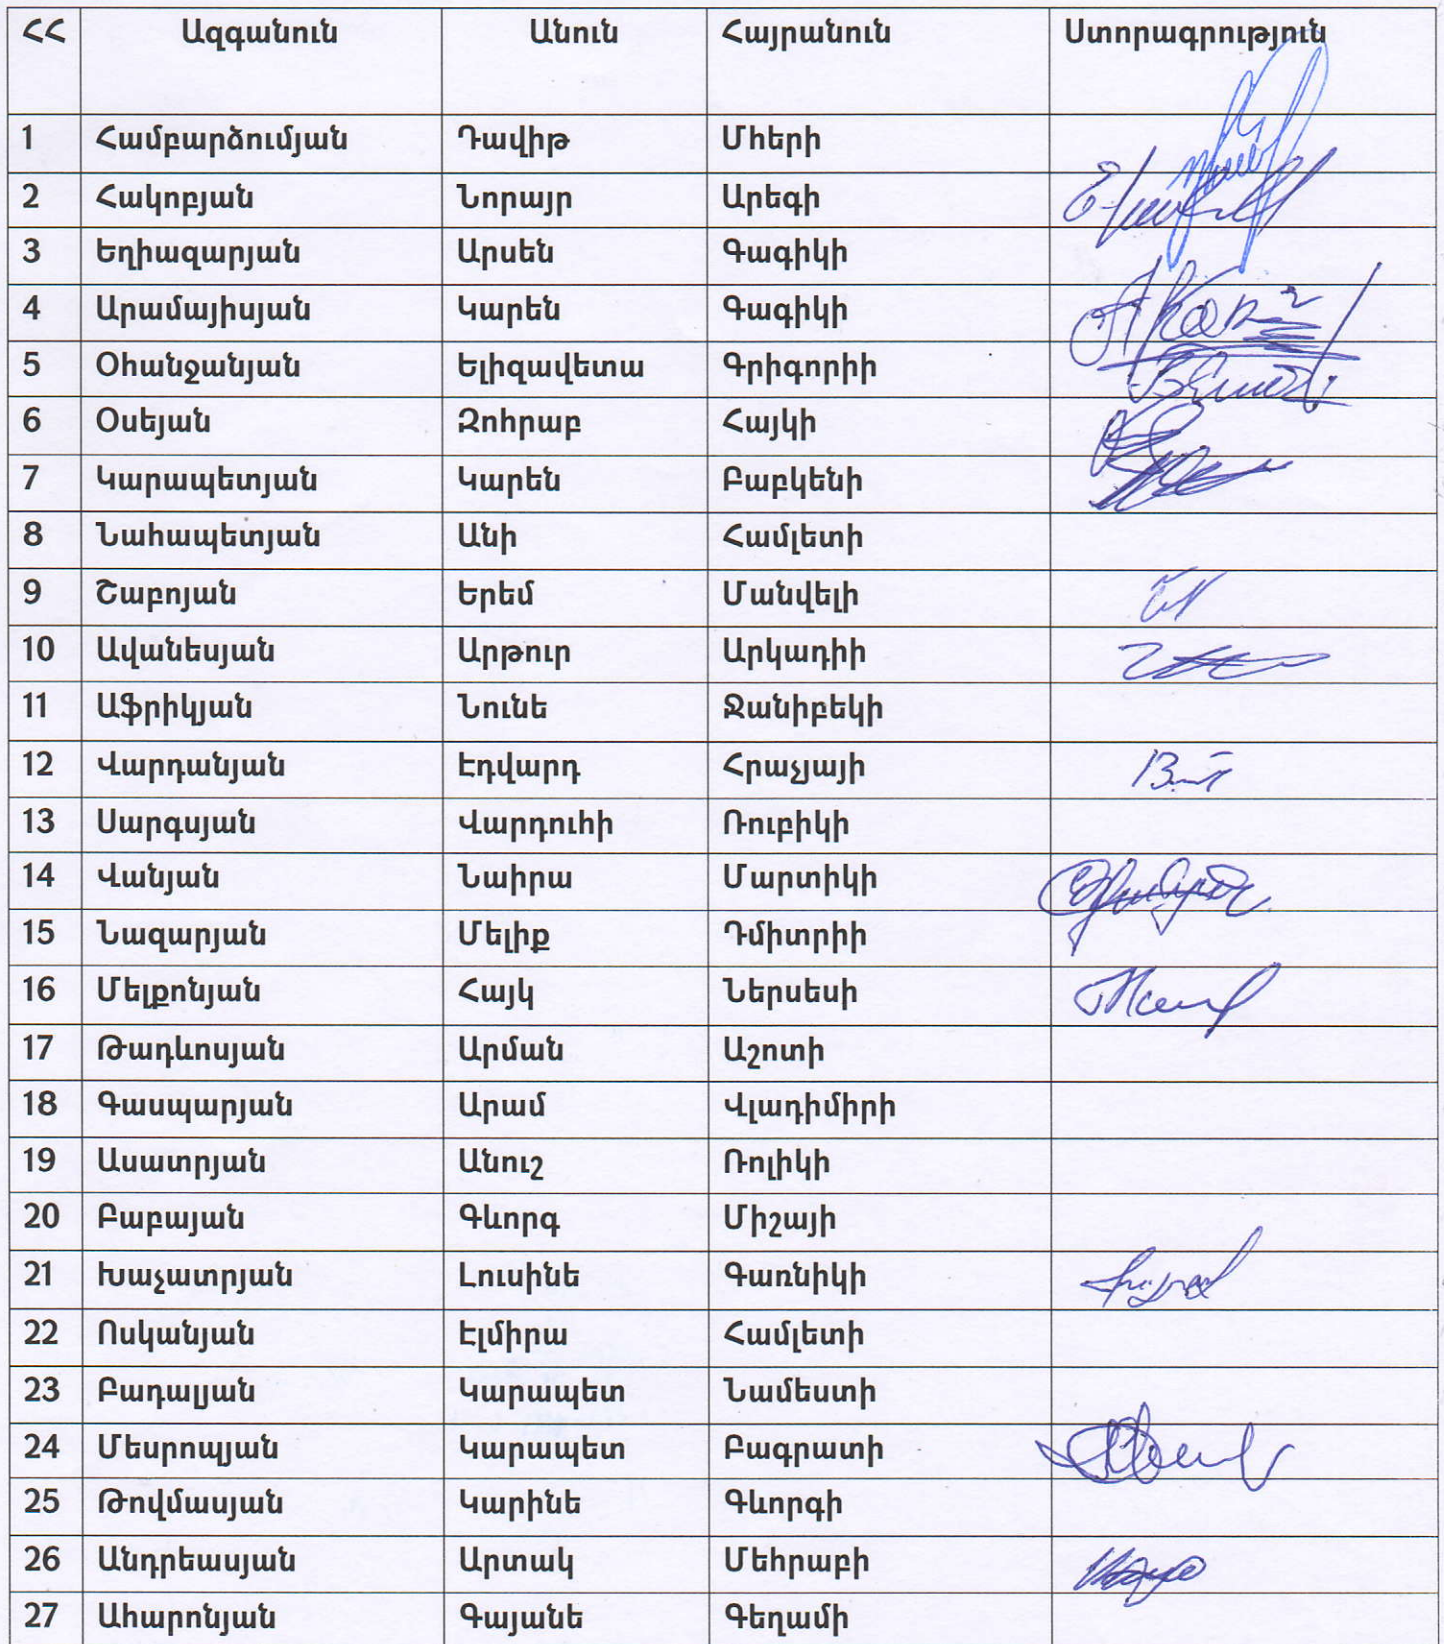 ՀՀ Ազգանուն Անուն Հայրանուն Ստորագրություն
1 Համբարձումյան Դավիթ Մհերի
2 Հակոբյան Նորայր Արեգի
3 Եղիազարյան Արսեն Գագիկի
4 Արամայիսյան Կարեն Գագիկի
5 Օհանջանյան Ելիզավետա Գրիգորիի
6 Օսեյան Զոհրաբ Հայկի
7 Կարապետյան Կարեն Բաբկենի
8 Նահապետյան Անի Համլետի
9 Շաբոյան Երեմ Մանվելի
10 Ավանեսյան Արթուր Արկադիի
11 Աֆրիկյան Նունե Ջանիբեկի
12 Վարդանյան Էդվարդ Հրաչյայի
13 Սարգսյան Վարդուհի Ռուբիկի
14 Վանյան Նաիրա Մարտիկի
15 Նազարյան Մելիք Դմիտրիի
16 Մելքոնյան Հայկ Ներսեսի
17 Թադևոսյան Արման Աշոտի
18 Գասպարյան Արամ Վլադիմիրի
19 Ասատրյան Անուշ Ռոլիկի
20 Բաբայան Գևորգ Միշայի
21 Խաչատրյան Լուսինե Գառնիկի
22 Ոսկանյան Էլմիրա Համլետի
23 Բադալյան Կարապետ Նամեստի
24 Մեսրոպյան Կարապետ Բագրատի
25 Թովմասյան Կարինե Գևորգի
26 Անդրեասյան Արտակ Մեհրաբի
27 Ահարոնյան Գայանե Գեղամի